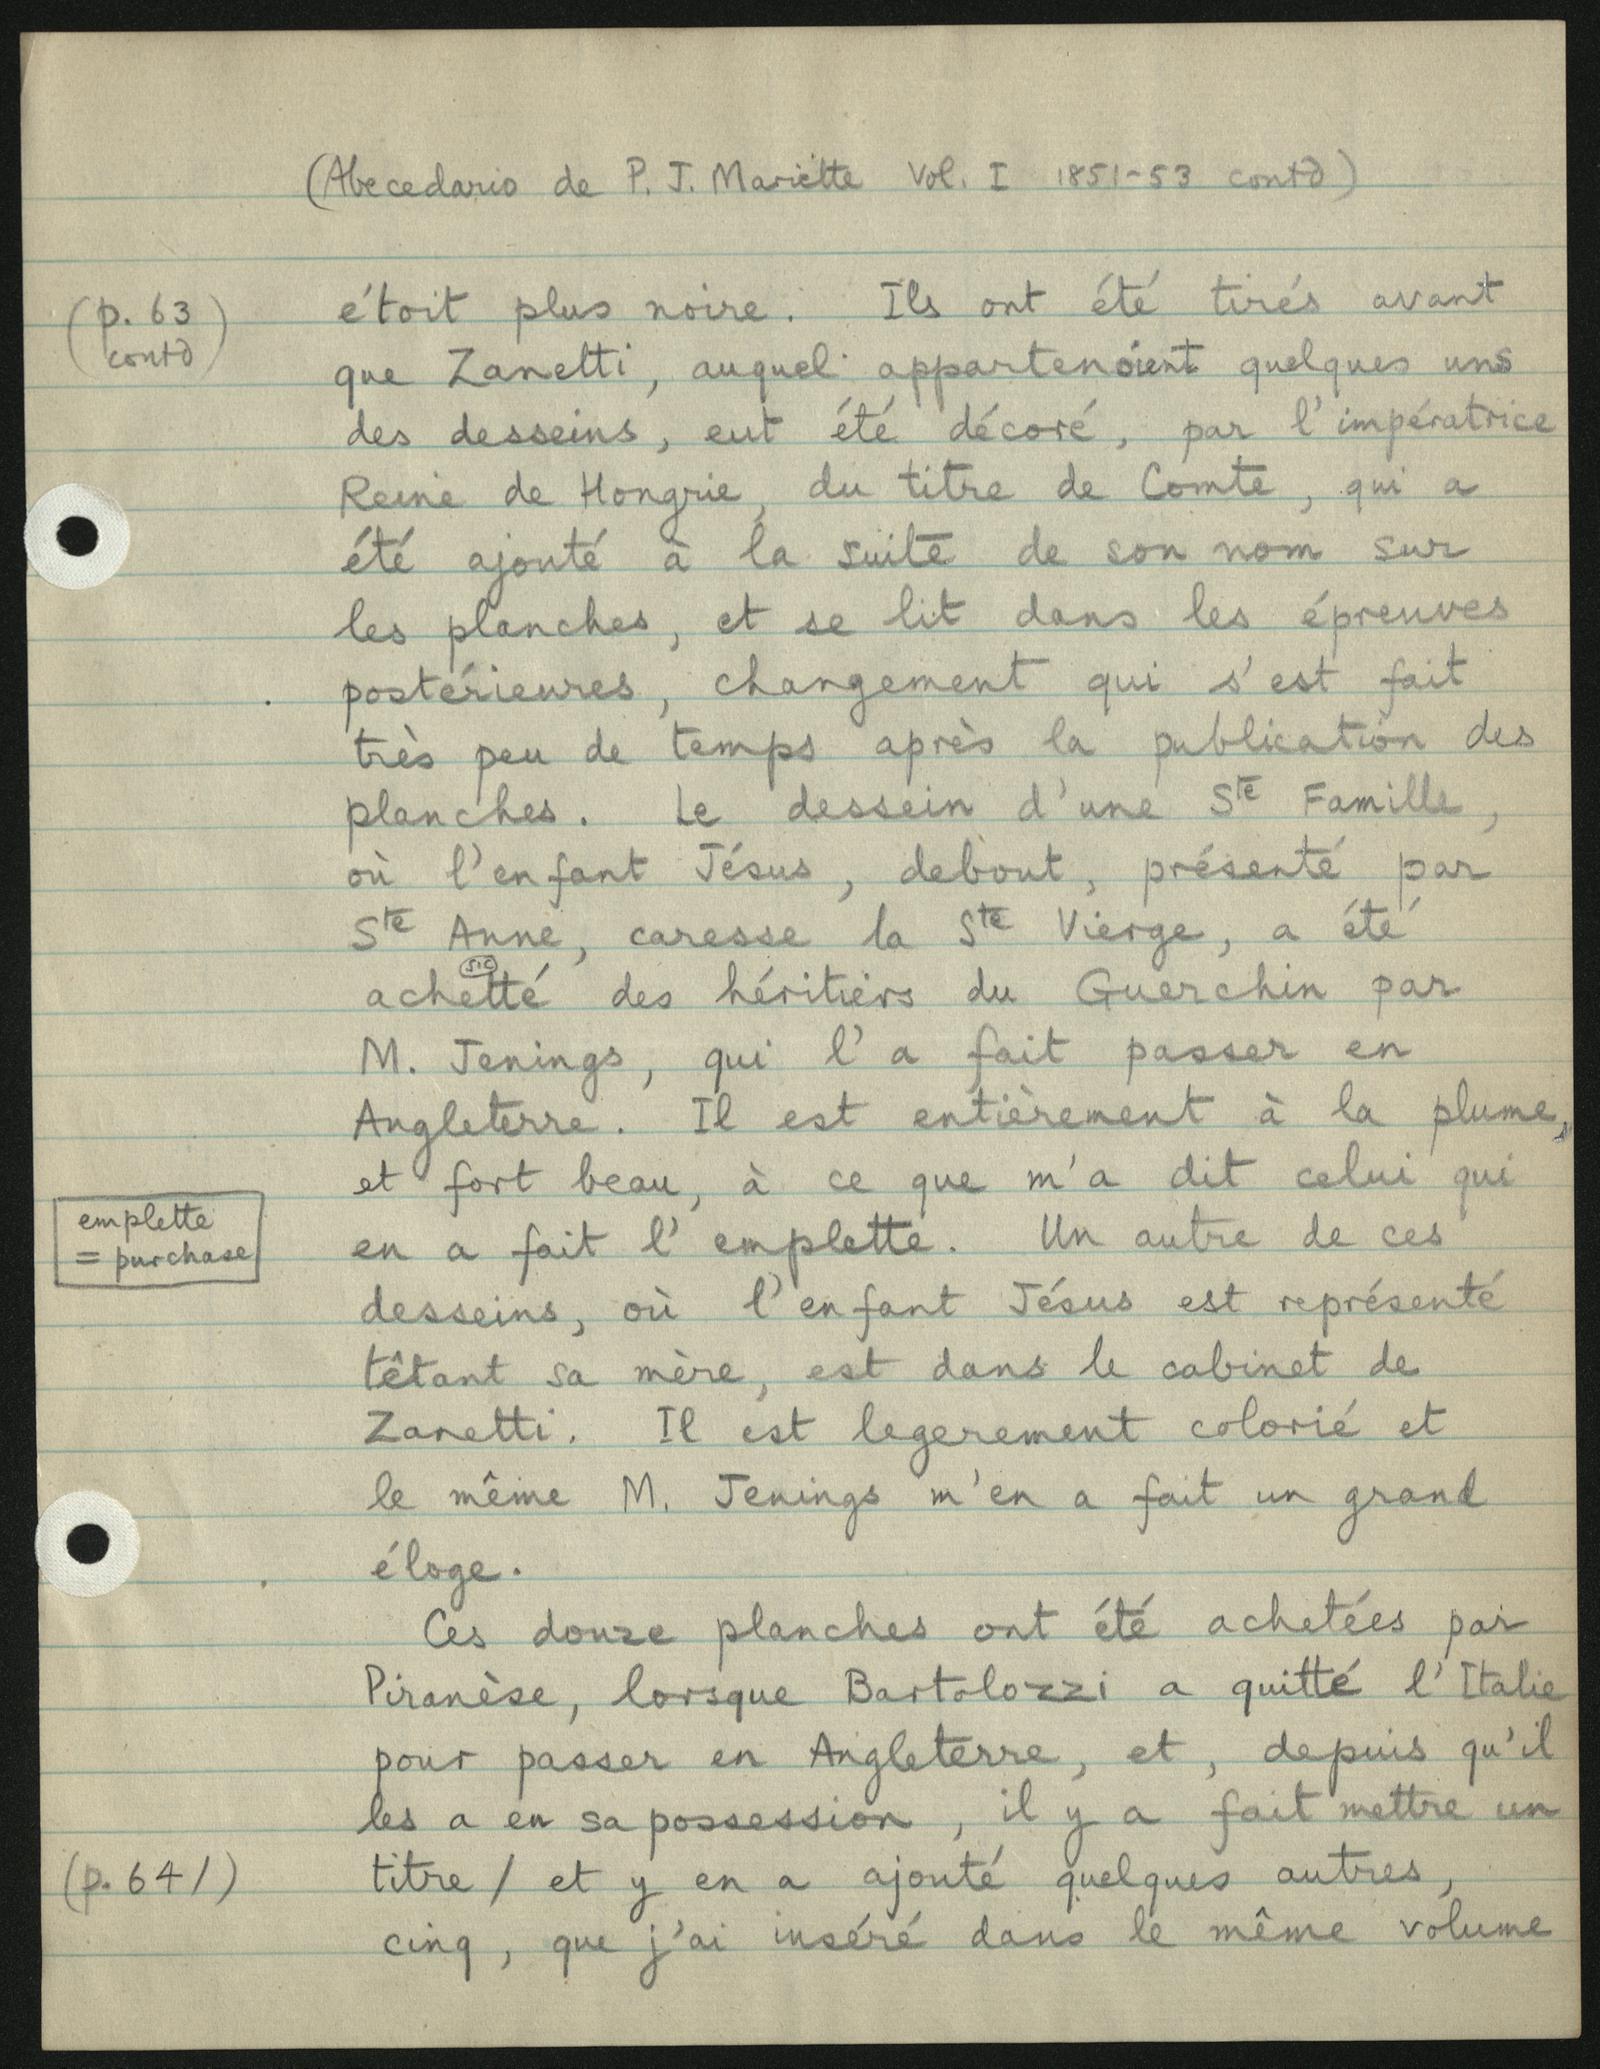 (Abecedario de P. J. Mariette Vol. I 1851-53 contd)
(p. 63
contd)
étoit plus noire. Ils ont été tirés avant
que Zanetti, auquel appartenoient quelques uns
des desseins, eut été décoré, par l'impératrice
Reine de Hongrie, du titre de Comte, qui a
été ajouté à la suite de son nom sur
les planches, et se lit dans les épreuves
postérieures, changement qui s'est fait
très peu de temps après la publication des
planches. Le dessein d'une Ste Famille,
où l'enfant Jésus, debout, présenté par
Ste Anne, caresse la Ste Vierge, a été
sic
achetté des héritiers du Guerchin par
M. Jenings, qui l'a fait passer en
Angleterre. Il est entièrement à la plume,
et fort beau, à ce que m'a dit celui qui
emplette
= purchase
en a fait l'emplette. Un autre de ces
desseins, où l'enfant Jésus est représenté
têtant sa mère, est dans le cabinet de
Zanetti. Il est legerement colorié et
le même M. Jenings m'en a fait un grand
éloge.
Ces douze planches ont été achetées par
Piranèse, lorsque Bartolozzi a quitté l'Italie
pour passer en Angleterre, et, depuis qu'il
les a en sa possession, il y a fait mettre un
(p. 64/)
titre / et y en a ajouté quelques autres,
cinq, que j'ai inséré dans le même volume